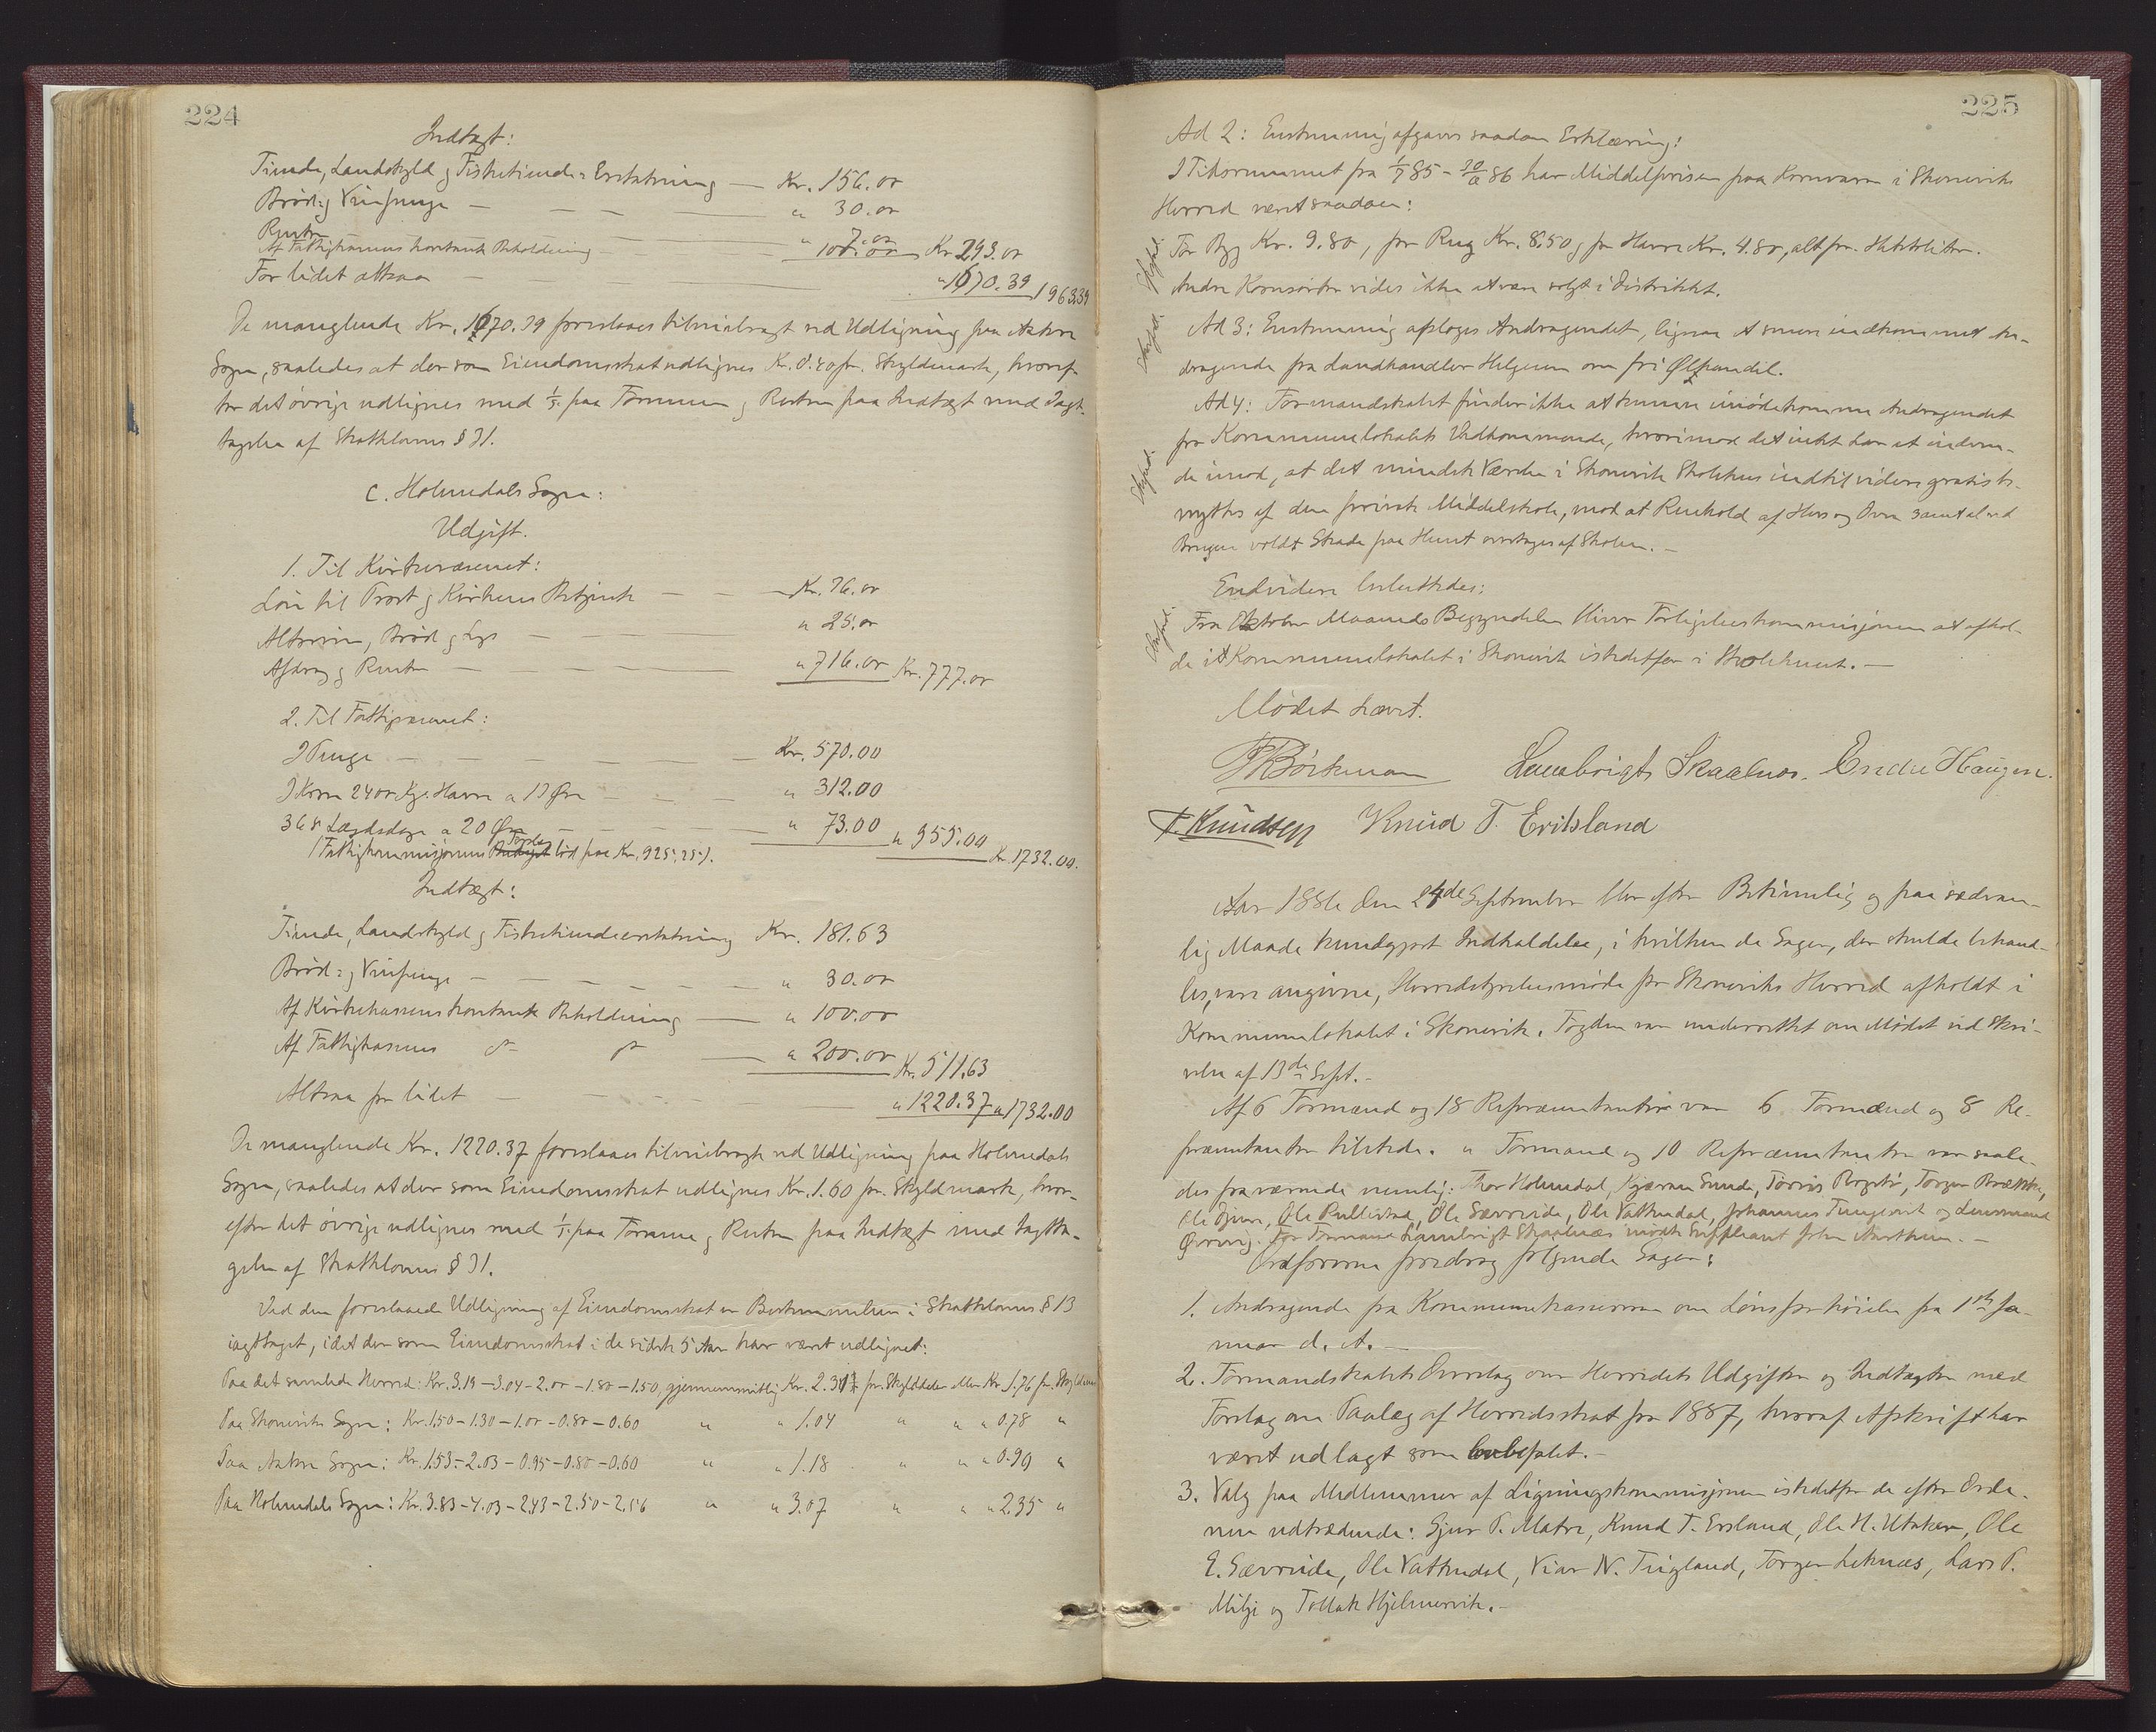 224
Indtægt:
Tiende, Landskyld og Fisketiende-Erstatning — Kr. 156.00
Brød- og Vinpenge — " 30.00
Renter — " 7.00
Af Fattigkassens kontante Beholdning — 100.00 Kr. 293.00
For lidet altsaa — " 1670.39 1963.39
De manglende Kr. 1670.39 foreslaaes tilveiebragt ved Udligning paa Aakre
Sogn, saaledes at der som Eiendomsskat udlignes Kr. 0.40 pr. Skyldmark, hvoref-
ter det øvrige udlignes med 1/5 paa Formue og Resten paa Indtægt med Iagt-
tagelse af Skatteloven § 31.
C. Holmedals Sogn:
Udgift.
1. Til Kirkevæsenet:
Løn til Provst og Kirkens Betjente — Kr. 36.00
Altervin, Brød og Lys — " 25.00
Afdrag og Renter — " 716.00 Kr. 777.00
2. Til Fattigvæsenet:
I Penge — Kr. 570.00
I Korn 2400 Kg. Havre a 13 Øre — " 312.00
365 Lægdsdage a 20 Øre — " 73.00 " 955.00 Kr. 1732.00.
(Fattigkommissjonens Forslag lød paa Kr. 925.25).
Indtægt:
Tiende, Landskyld og Fisketiendeerstatning Kr. 181.63
Brød- og Vinpenge — " 30.00
Af Kirkekassens kontante Beholdning — " 100.00
Af Fattigkassens do do — " 200.00 Kr. 511.63
Altsaa for lidet — " 1220.37 " 1732.00
De manglende Kr. 1220.37 foreslaaes tilveiebragte ved Udligning paa Holmedals
Sogn, saaledes at der som Eiendomsskat udlignes Kr. 1.60 pr. Skyldmark, hvor-
efter det øvrige udlignes med 1/5 paa Formue og Resten paa Indtægt med Iagtta-
gelse af Skattelovens § 31.
Ved den foreslaaede Udligning af Eiendomsskat er Bestemmelsen i Skattelovens § 13
iagttaget, idet der som Eiendomsskat i de sidste 5 Aar har været udlignet:
Paa det samlede Herred: Kr. 3.19 – 3.04 – 2.00 – 1.80 – 1.50, gjennemsnitlig Kr. 2.31 pr. Skylddaler eller Kr. 1.76 pr. Skyldmark
Paa Skonevik Sogn: Kr. 1.50 – 1.30 – 1.00 – 0.80 – 0.60 " " 1.04 " " " 0.78 "
Paa Aakre Sogn: Kr. 1.53 – 2.03 – 0.95 – 0.80 – 0.60 " " 1.18 " " " 0.90 "
Paa Holmedals Sogn: Kr. 3.83 – 4.03 – 2.43 – 2.50 – 2.56 " " 3.07 " " " 2.35 "
225
Ad 2: Enstemmig afgaves saadan Erklæring:
I Tidsrummet fra 1/7 85 – 20/9 86 har Middelprisen paa Kornvarer i Skoneviks
Herred været saadan:
For Byg Kr. 9.80, for Rug Kr. 8.50 og for Havre Kr. 4.80, alt pr. Hektoliter.
Andre Kornsorter vides ikke at være solgt i Distriktet.
Ad 3: Enstemmig afsloges Andragendet, ligesaa et senere indkommet An-
dragende fra Landhandler Helgesen om fri Ølhandel.
Ad 4: Formandskabet finder ikke at kunne imødekomme Andragendet
for Kommunelokalets Vedkommende, hvorimod det intet har at inden-
de imod, at det mindste Værelse i Skonevik Skolehus indtil videre gratis be-
nyttes af den private Middelskole, mod at Renhold af Hus og Ovn samt al ved
Brugen voldt Skade paa Huset overtages af Skolen. —
Endvidere besluttedes:
Fra Oktober Maaneds Begyndelse bliver Forligelseskommissjonen at afhol-
de i Kommunelokalet i Skonevik istedetfor i Skolehuset. —
Mødet hævet.
Børkman Lambrigt Skaalnes. Endre Haugen.
T. Knudsen Knud T. Eritsland
Aar 1886 den 24de September blev efter Betimelig og paa sædvan-
lig Maade kundgjort Indkaldelse, i hvilken de Sager, der skulde behand-
les, vare angivne, Herredsstyrelsesmøde for Skoneviks Herred afholdt i
Kommunelokalet i Skonevik. Fogden var underrettet om Mødet ved Skri-
velse af 13de Sept. –
Af 6 Formænd og 18 Repræsentanter var 6 Formænd og 8 Re-
præsentanter tilstede. " Formænd og 10 Repræsentanter var saale-
des fraværende nemlig: Thor Holmedal, Kjæran Sunde, Torger Brække,
Ole Vattendal, Johannes Tungesvik og Lensmand
For Formand Lambrigt Skaalnes mødte Suppleant —
Ordføreren foredrog følgende Sager:
1. Andragende fra Kommunekassereren om Lønsforhøielse fra 1ste Ja-
nuar d. A. —
2. Formandskabets Overslag over Herredets Udgifter og Indtægter med
Forslag om Paalæg af Herredsskat for 1887, hvoraf Afskrift har
været udlagt som lovbefalet. –
3. Valg paa Medlemmer af Ligningskommissjonen istedetfor de efter Orde-
nen udtrædende: Sjur P. Matre, Knud T. Ersland, Ole H. Utaker, Ole
E. Sævreide, Ole Vattendal, Viar N. Tungland, Torger Leknæs, Lars P.
Milje og Tollak Hjelmervik. –